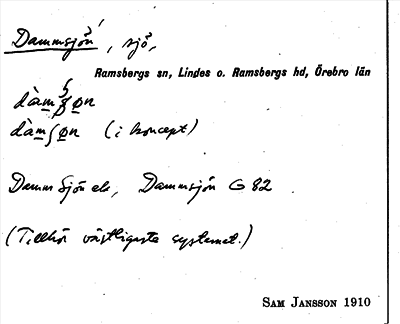 Dammsjön, sjö,
Ramsbergs sn, Lindes o. Ramsbergs hd, Örebro län
dàmʃøn
dàmʃøn (i koncept)
Damm Sjön ek, Dammsjön G 82
(Tillhör västligaste systemet.)
SAM JANSSON 1910